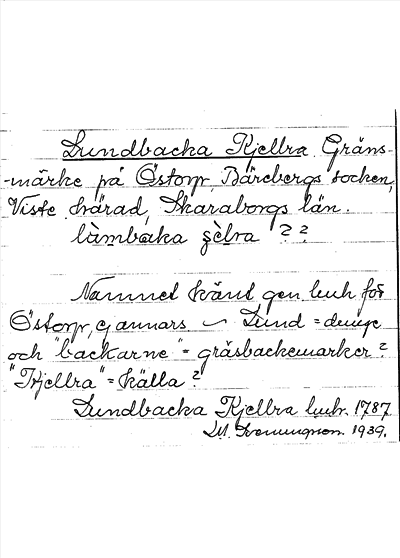 Lundbacka Kjellra Gräns-
-märke på Östorp, Bärebergs socken,
Viste härad, Skaraborgs län.
làmbaka çèlra ? ?
Namnet känt gen. lmh för
Östorp, ej annars ~ Lund = dunge
och "backarne" = gräsbackemarker?
"Kjellra" = källa?
Lundbacka Kjellra lmhr. 1787
1939.